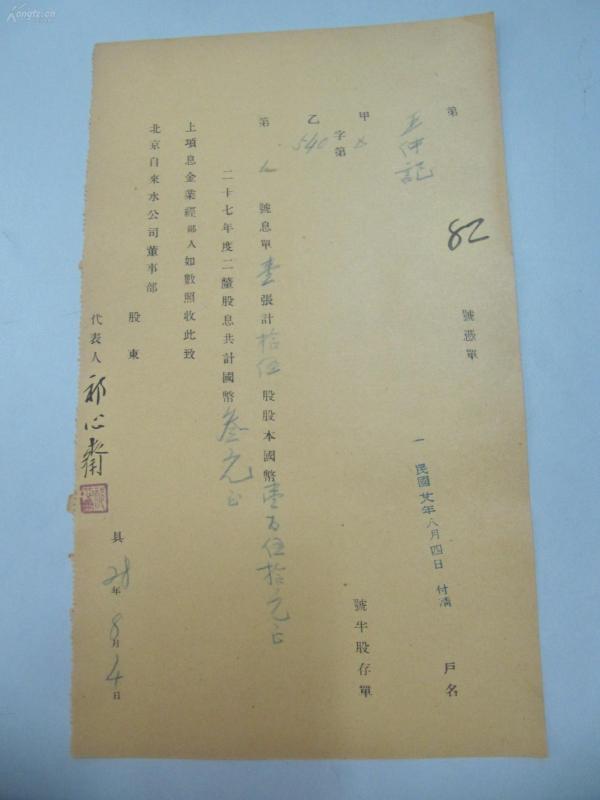 第 82 號憑單
王仲記 戶名
民國廿年八月四日 付清
甲
乙 字第 540 號半股存單
第 號息單壹張計拾伍股股本國幣壹百伍拾元正
二十七年度二釐股息共計國幣叁元正
上項息金業經鄙人如數照收此致
北京自來水公司董事部
股東
代表人 祁心齋 具 28年8月4日
Kongfz.cn